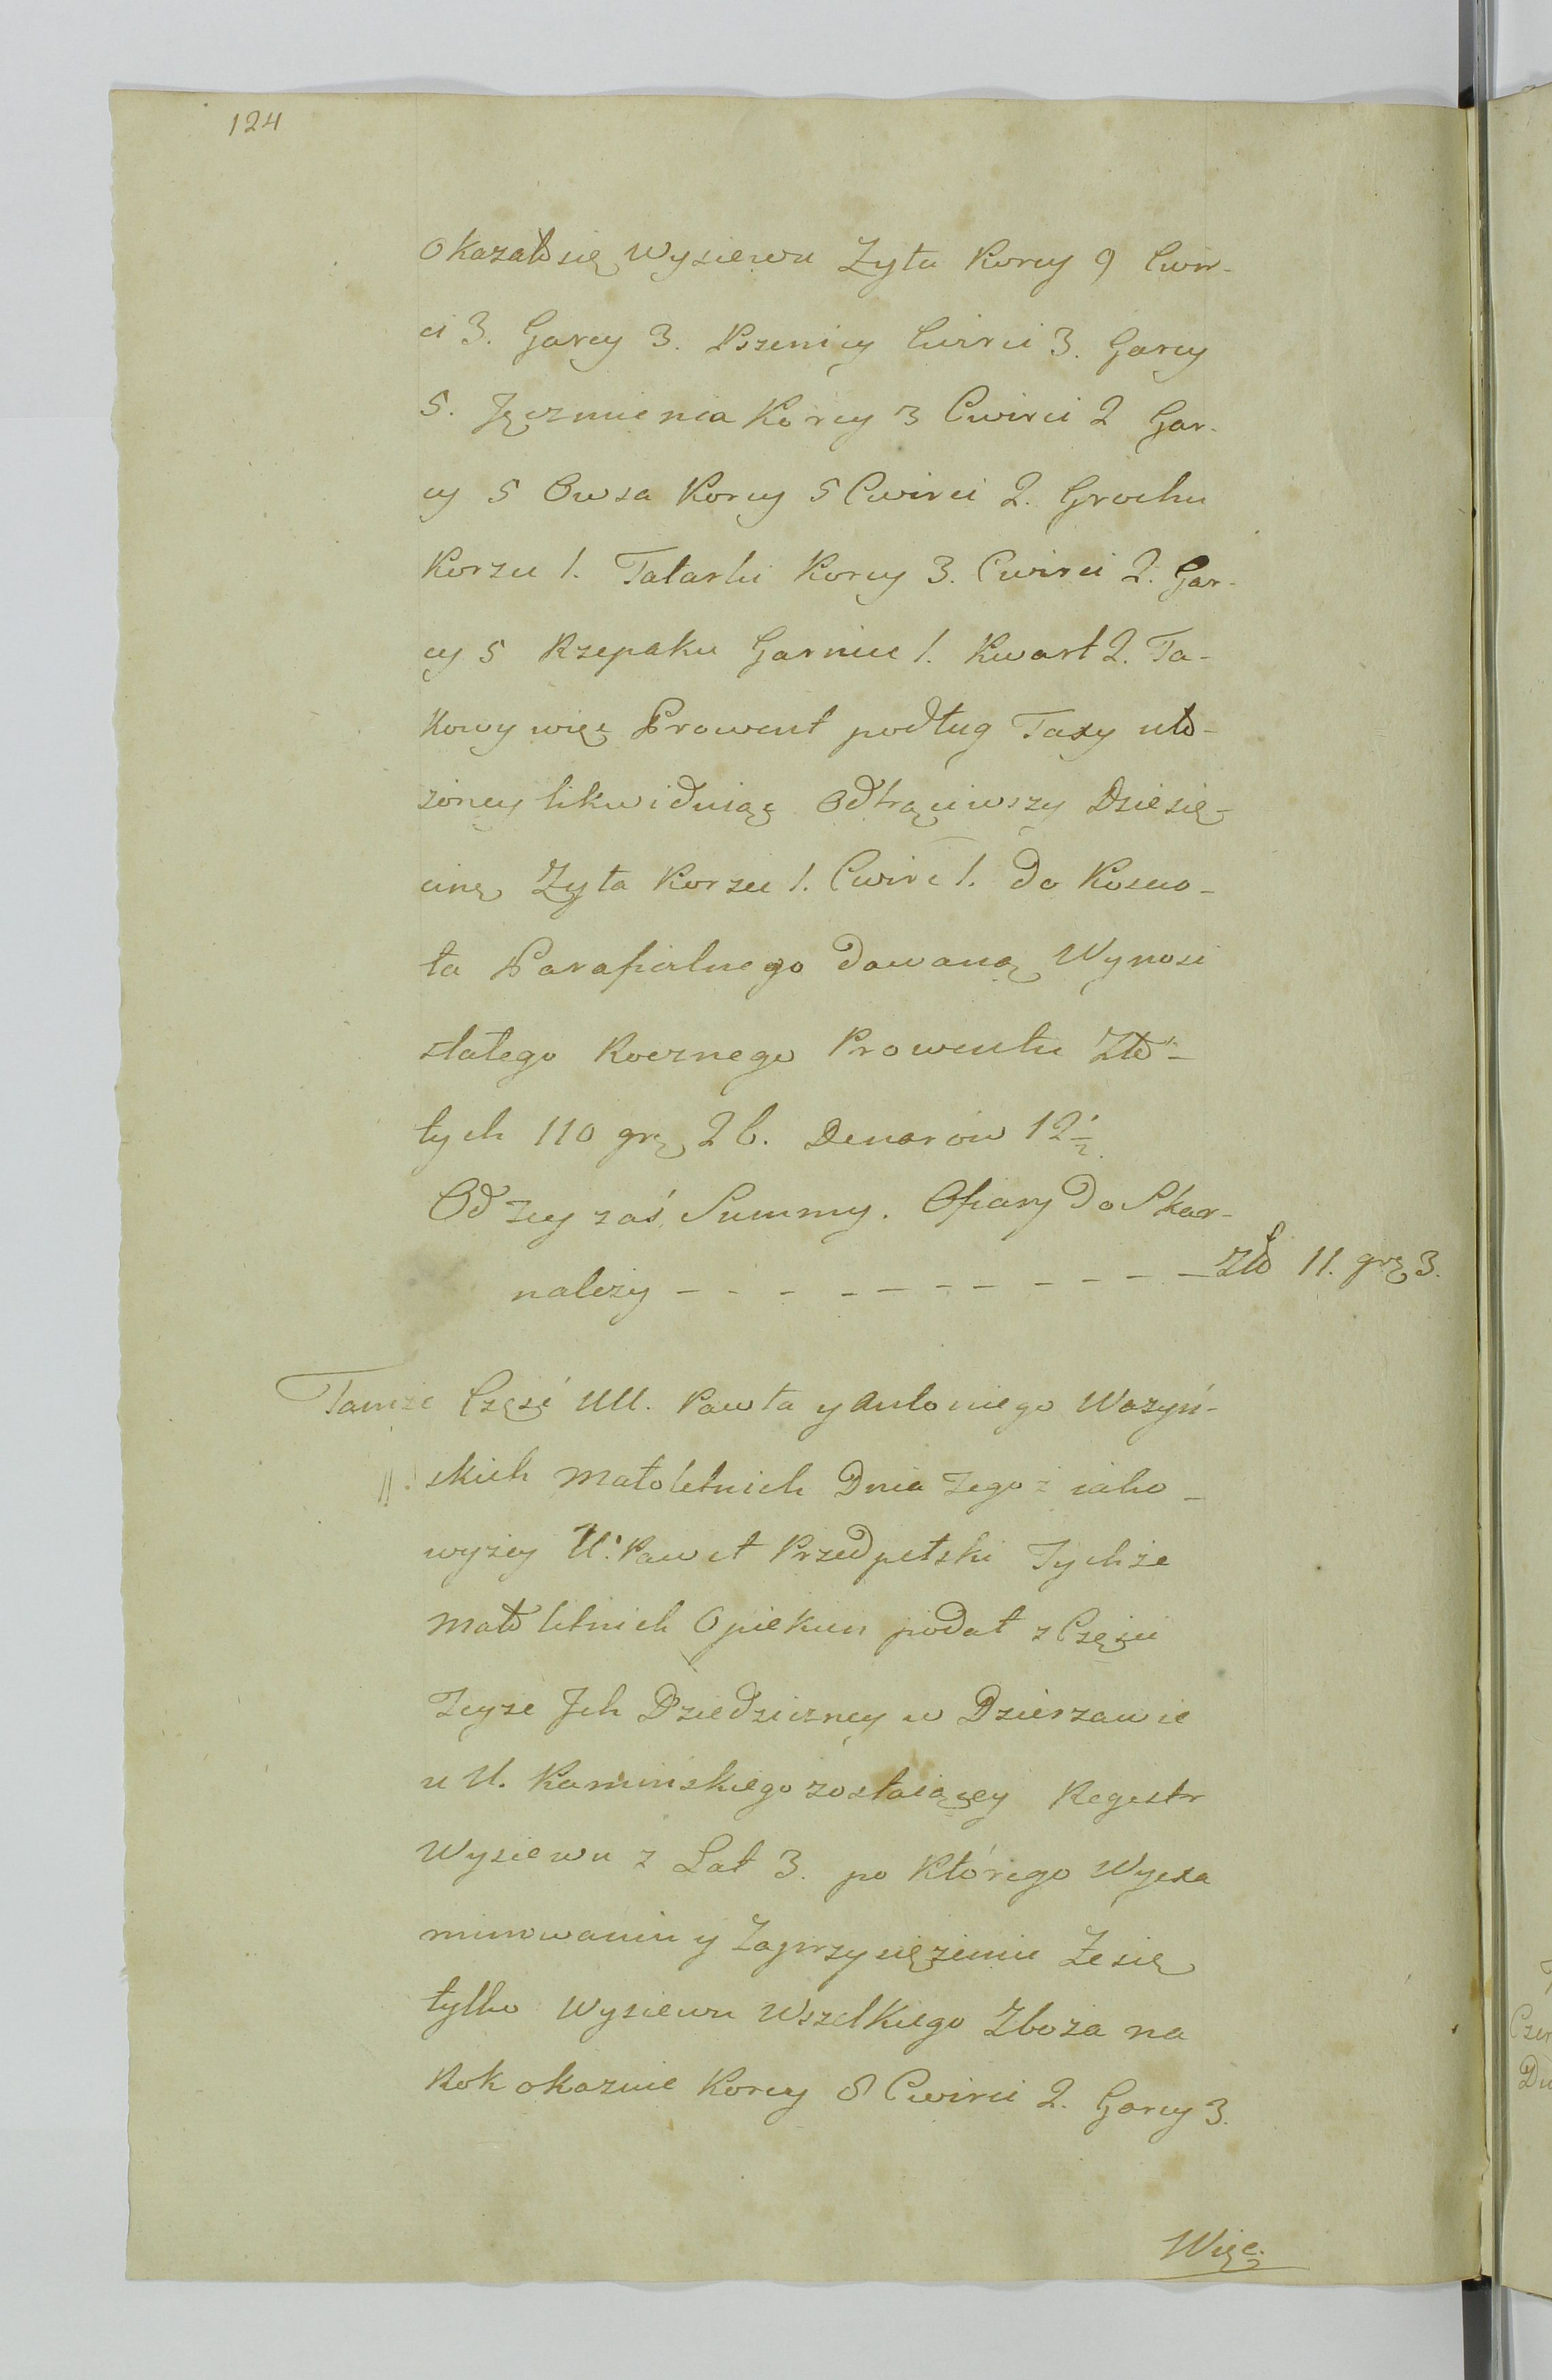 124
okazał się Wysiewu Zyta Korcy 9 Cwir-
ci 3. Garcy 3. Pszenicy Cwirci 3. Garcy
5. Jęczmienia Korcy 3 Cwirci 2 Gar-
cy 5 Owsa Korcy 5 Cwirci 2. Grochu
Korzec 1. Tatarki Korcy 3. Cwirci 2. Gar-
cy 5 Rzepaku Garniec 1. Kwart 2. Ta-
kowy więc Prowent podług Taxy uło-
zoney likwiduiąc Odtrąciwszy Dziesię-
cinę Zyta Korzec 1. Cwirć 1. do Koscio-
ła Parafialnego dawaną Wynosi
stałego Rocznego Prowentu Zło-
tych 110 grz 26. Denarów 12½
Od tey zaś Summy. Ofiary do Skar-
należy - - - - - - - - - - - Zło 11. grz 3.
Tamże Częsć UU. Pawła y Antoniego Wazyń-
skich małoletnich Dnia tegoż iako-
wyzey U. Paweł Przedpełski Tychże
małoletnich Opiekun podał z Częsci
Teyze Jch Dziedziczney w Dzierzawie
u U. Kaminskiego zostaiącey Regestr
Wysiewu z Lat 3. po którego Wyexa
minowaniu y Zaprzysięzeniu Ze się
tylko Wysiewu Wszelkiego Zboza na
Rok okazuie Korcy 8 Cwirci 2. Garcy 3.
Więc